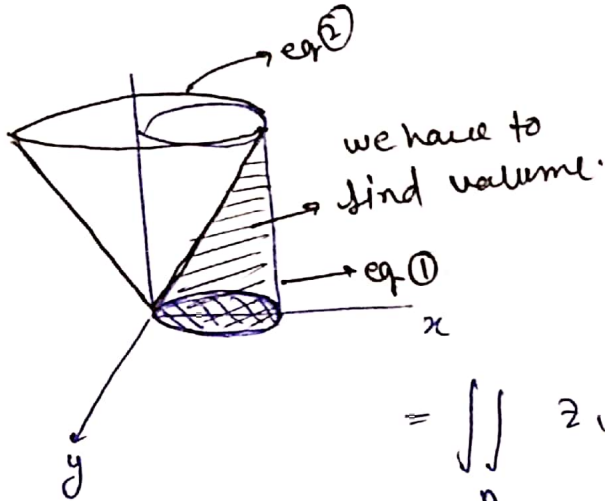 eq②
we have to
find volume.
eq①
x
y
= ∬ z
D